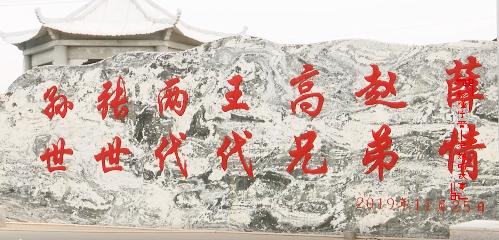 孙张两王高赵薛
世世代代兄弟情
2019年11月25日